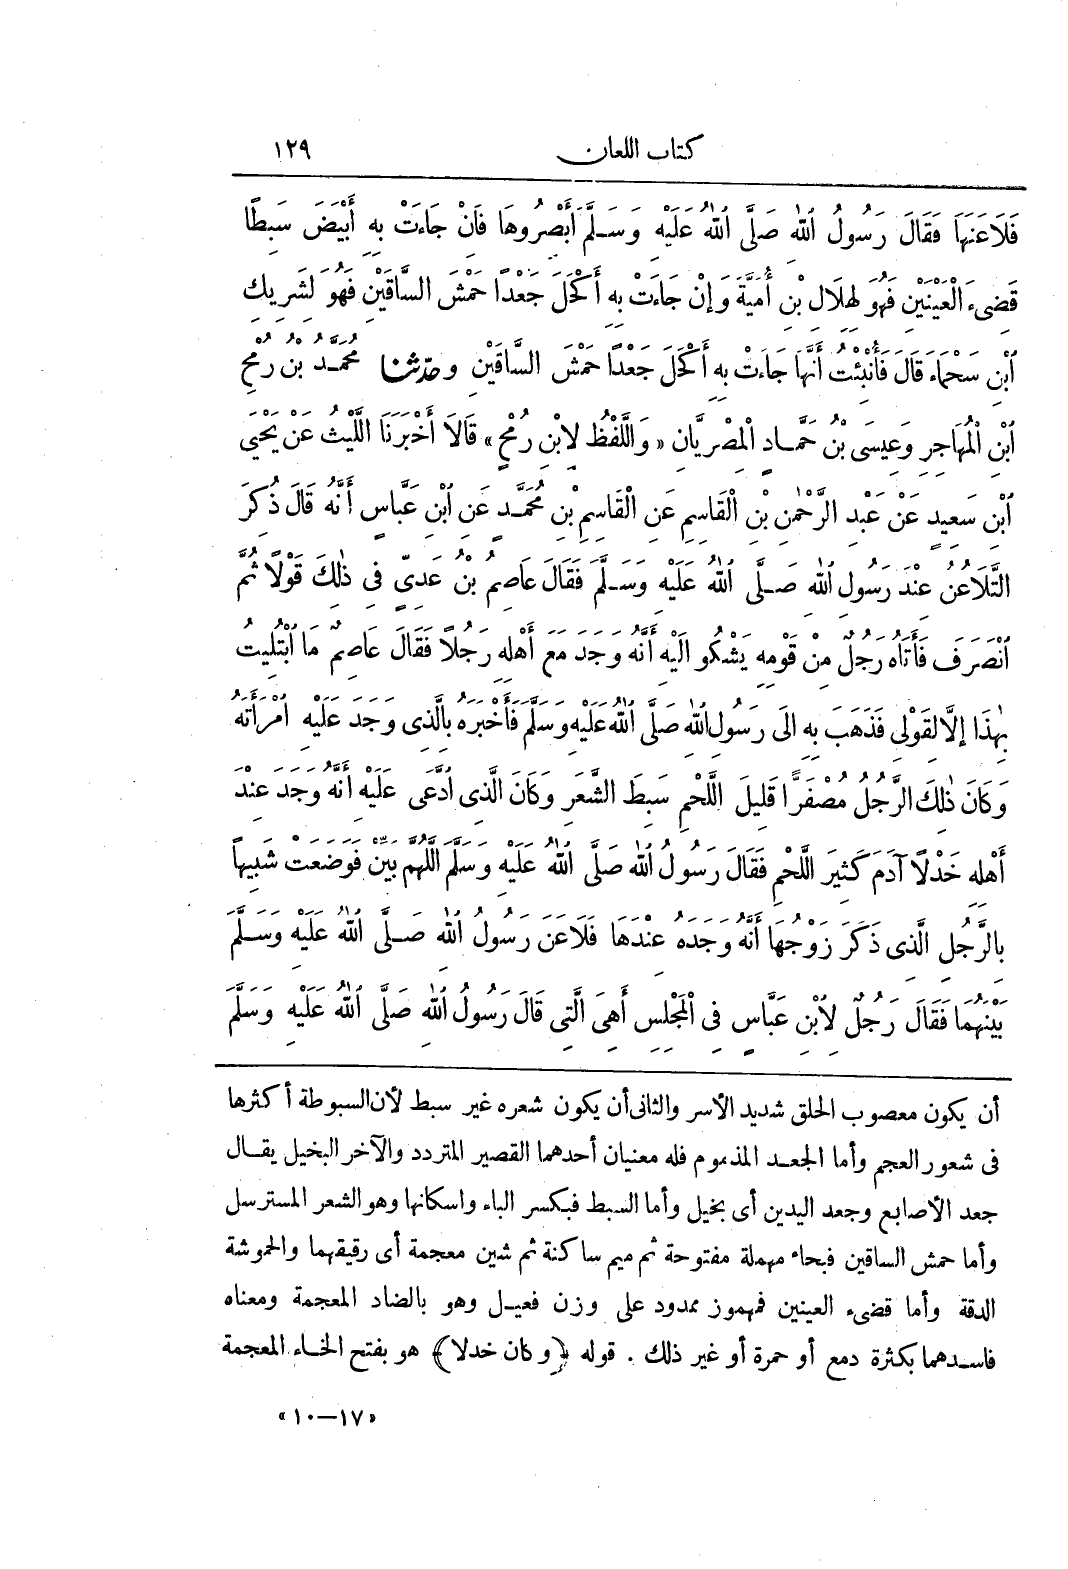 كتاب اللعان ١٢٩
فَلَاعَنَهَا فَقَالَ رَسُولُ ٱللهِ صَلَّى ٱللهُ عَلَيْهِ وَسَلَّمَ أَبْصِرُوهَا فَانْ جَاءَتْ بِهِ أَبْيَضَ سَبِطًا
قَضِىءَ الْعَيْنَيْنِ فَهُوَ لِهِلَالِ بْنِ أُمَيَّةَ وَإِنْ جَاءَتْ بِهِ أَكْحَلَ جَعْدًا حَمْشَ السَّاقَيْنِ فَهُوَ لِشَرِيكِ
ٱبْنِ سَحْمَاءَ قَالَ فَأُنْبِئْتُ أَنَّهَا جَاءَتْ بِهِ أَكْحَلَ جَعْدًا حَمْشَ السَّاقَيْنِ وحدّثنا مُحَمَّدُ بْنُ رُمْحِ
ٱبْنِ الْمُهَاجِرِ وَعِيسَى بْنُ حَمَّادٍ الْمِصْرِيَّانِ « وَاللَّفْظُ لِابْنِ رُمْحٍ » قَالَا أَخْبَرَنَا اللَّيْثُ عَنْ يَحْيَى
ٱبْنِ سَعِيدٍ عَنْ عَبْدِ الرَّحْمٰنِ بْنِ الْقَاسِمِ عَنِ الْقَاسِمِ بْنِ مُحَمَّدٍ عَنِ ابْنِ عَبَّاسٍ أَنَّهُ قَالَ ذُكِرَ
التَّلَاعُنُ عِنْدَ رَسُولِ ٱللهِ صَلَّى ٱللهُ عَلَيْهِ وَسَلَّمَ فَقَالَ عَاصِمُ بْنُ عَدِىٍّ فِى ذٰلِكَ قَوْلًا ثُمَّ
ٱنْصَرَفَ فَأَتَاهُ رَجُلٌ مِنْ قَوْمِهِ يَشْكُو الَيْهِ أَنَّهُ وَجَدَ مَعَ أَهْلِهِ رَجُلًا فَقَالَ عَاصِمٌ مَا ابْتُلِيتُ
بِهٰذَا إِلَّا لِقَوْلِى فَذَهَبَ بِهِ الَى رَسُولِ ٱللهِ صَلَّى ٱللهُ عَلَيْهِ وَسَلَّمَ فَأَخْبَرَهُ بِالَّذِى وَجَدَ عَلَيْهِ امْرَأَتَهُ
وَكَانَ ذٰلِكَ الرَّجُلُ مُصْفَرًّا قَلِيلَ اللَّحْمِ سَبِطَ الشَّعَرِ وَكَانَ الَّذِى ادَّعَى عَلَيْهِ أَنَّهُ وَجَدَ عِنْدَ
أَهْلِهِ خَدْلًا آدَمَ كَثِيرَ اللَّحْمِ فَقَالَ رَسُولُ ٱللهِ صَلَّى ٱللهُ عَلَيْهِ وَسَلَّمَ اللَّهُمَّ بَيِّنْ فَوَضَعَتْ شَبِيهًا
بِالرَّجُلِ الَّذِى ذَكَرَ زَوْجُهَا أَنَّهُ وَجَدَهُ عِنْدَهَا فَلَاعَنَ رَسُولُ ٱللهِ صَلَّى ٱللهُ عَلَيْهِ وَسَلَّمَ
بَيْنَهُمَا فَقَالَ رَجُلٌ لِابْنِ عَبَّاسٍ فِى الْمَجْلِسِ أَهِىَ الَّتِى قَالَ رَسُولُ ٱللهِ صَلَّى ٱللهُ عَلَيْهِ وَسَلَّمَ
أن يكون معصوب الخلق شديد الأسر والثانى أن يكون شعره غير سبط لأن السبوطة أكثرها
فى شعور العجم وأما الجعد المذموم فله معنيان أحدهما القصير المتردد والآخر البخيل يقال
جعد الأصابع وجعد اليدين أى بخيل وأما السبط فبكسر الباء واسكانها وهو الشعر المسترسل
وأما حمش الساقين فبحاء مهملة مفتوحة ثم ميم ساكنة ثم شين معجمة أى رقيقهما والحموشة
الدقة وأما قضىء العينين فمهموز ممدود على وزن فعيل وهو بالضاد المعجمة ومعناه
فاسدهما بكثرة دمع أو حمرة أو غير ذلك . قوله ﴿وكان خدلا﴾ هو بفتح الخاء المعجمة
«١٧ــ١٠»